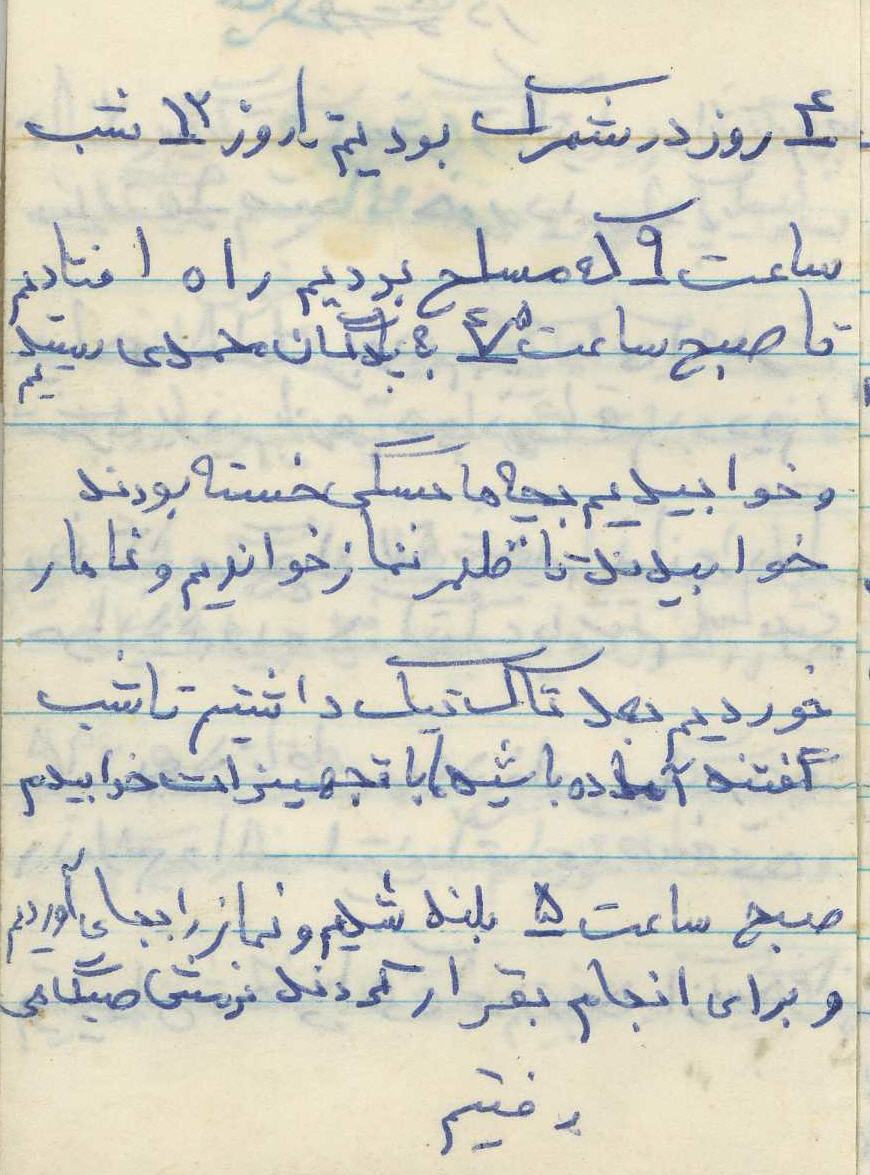 ۴ روز در شمرک بودیم تا روز ۱۳ شب
ساعت ۹ که مسلح بودیم راه افتادیم
تا صبح ساعت ۴/۵ به یادگمان حمدی رسیدیم
و خوابیدیم بچه ها همگی خسته بودند
خوابیدند تا ظهر نماز خواندیم و ناهار
خوردیم بعد تاکتیک داشتیم تا شب
گفتند آماده باشید با تجهیزات خوابیدیم
صبح ساعت ۵ بلند شدیم و نماز را بجای آوردیم
و برای انجام کردند نرمش صبگاهی
رفتیم